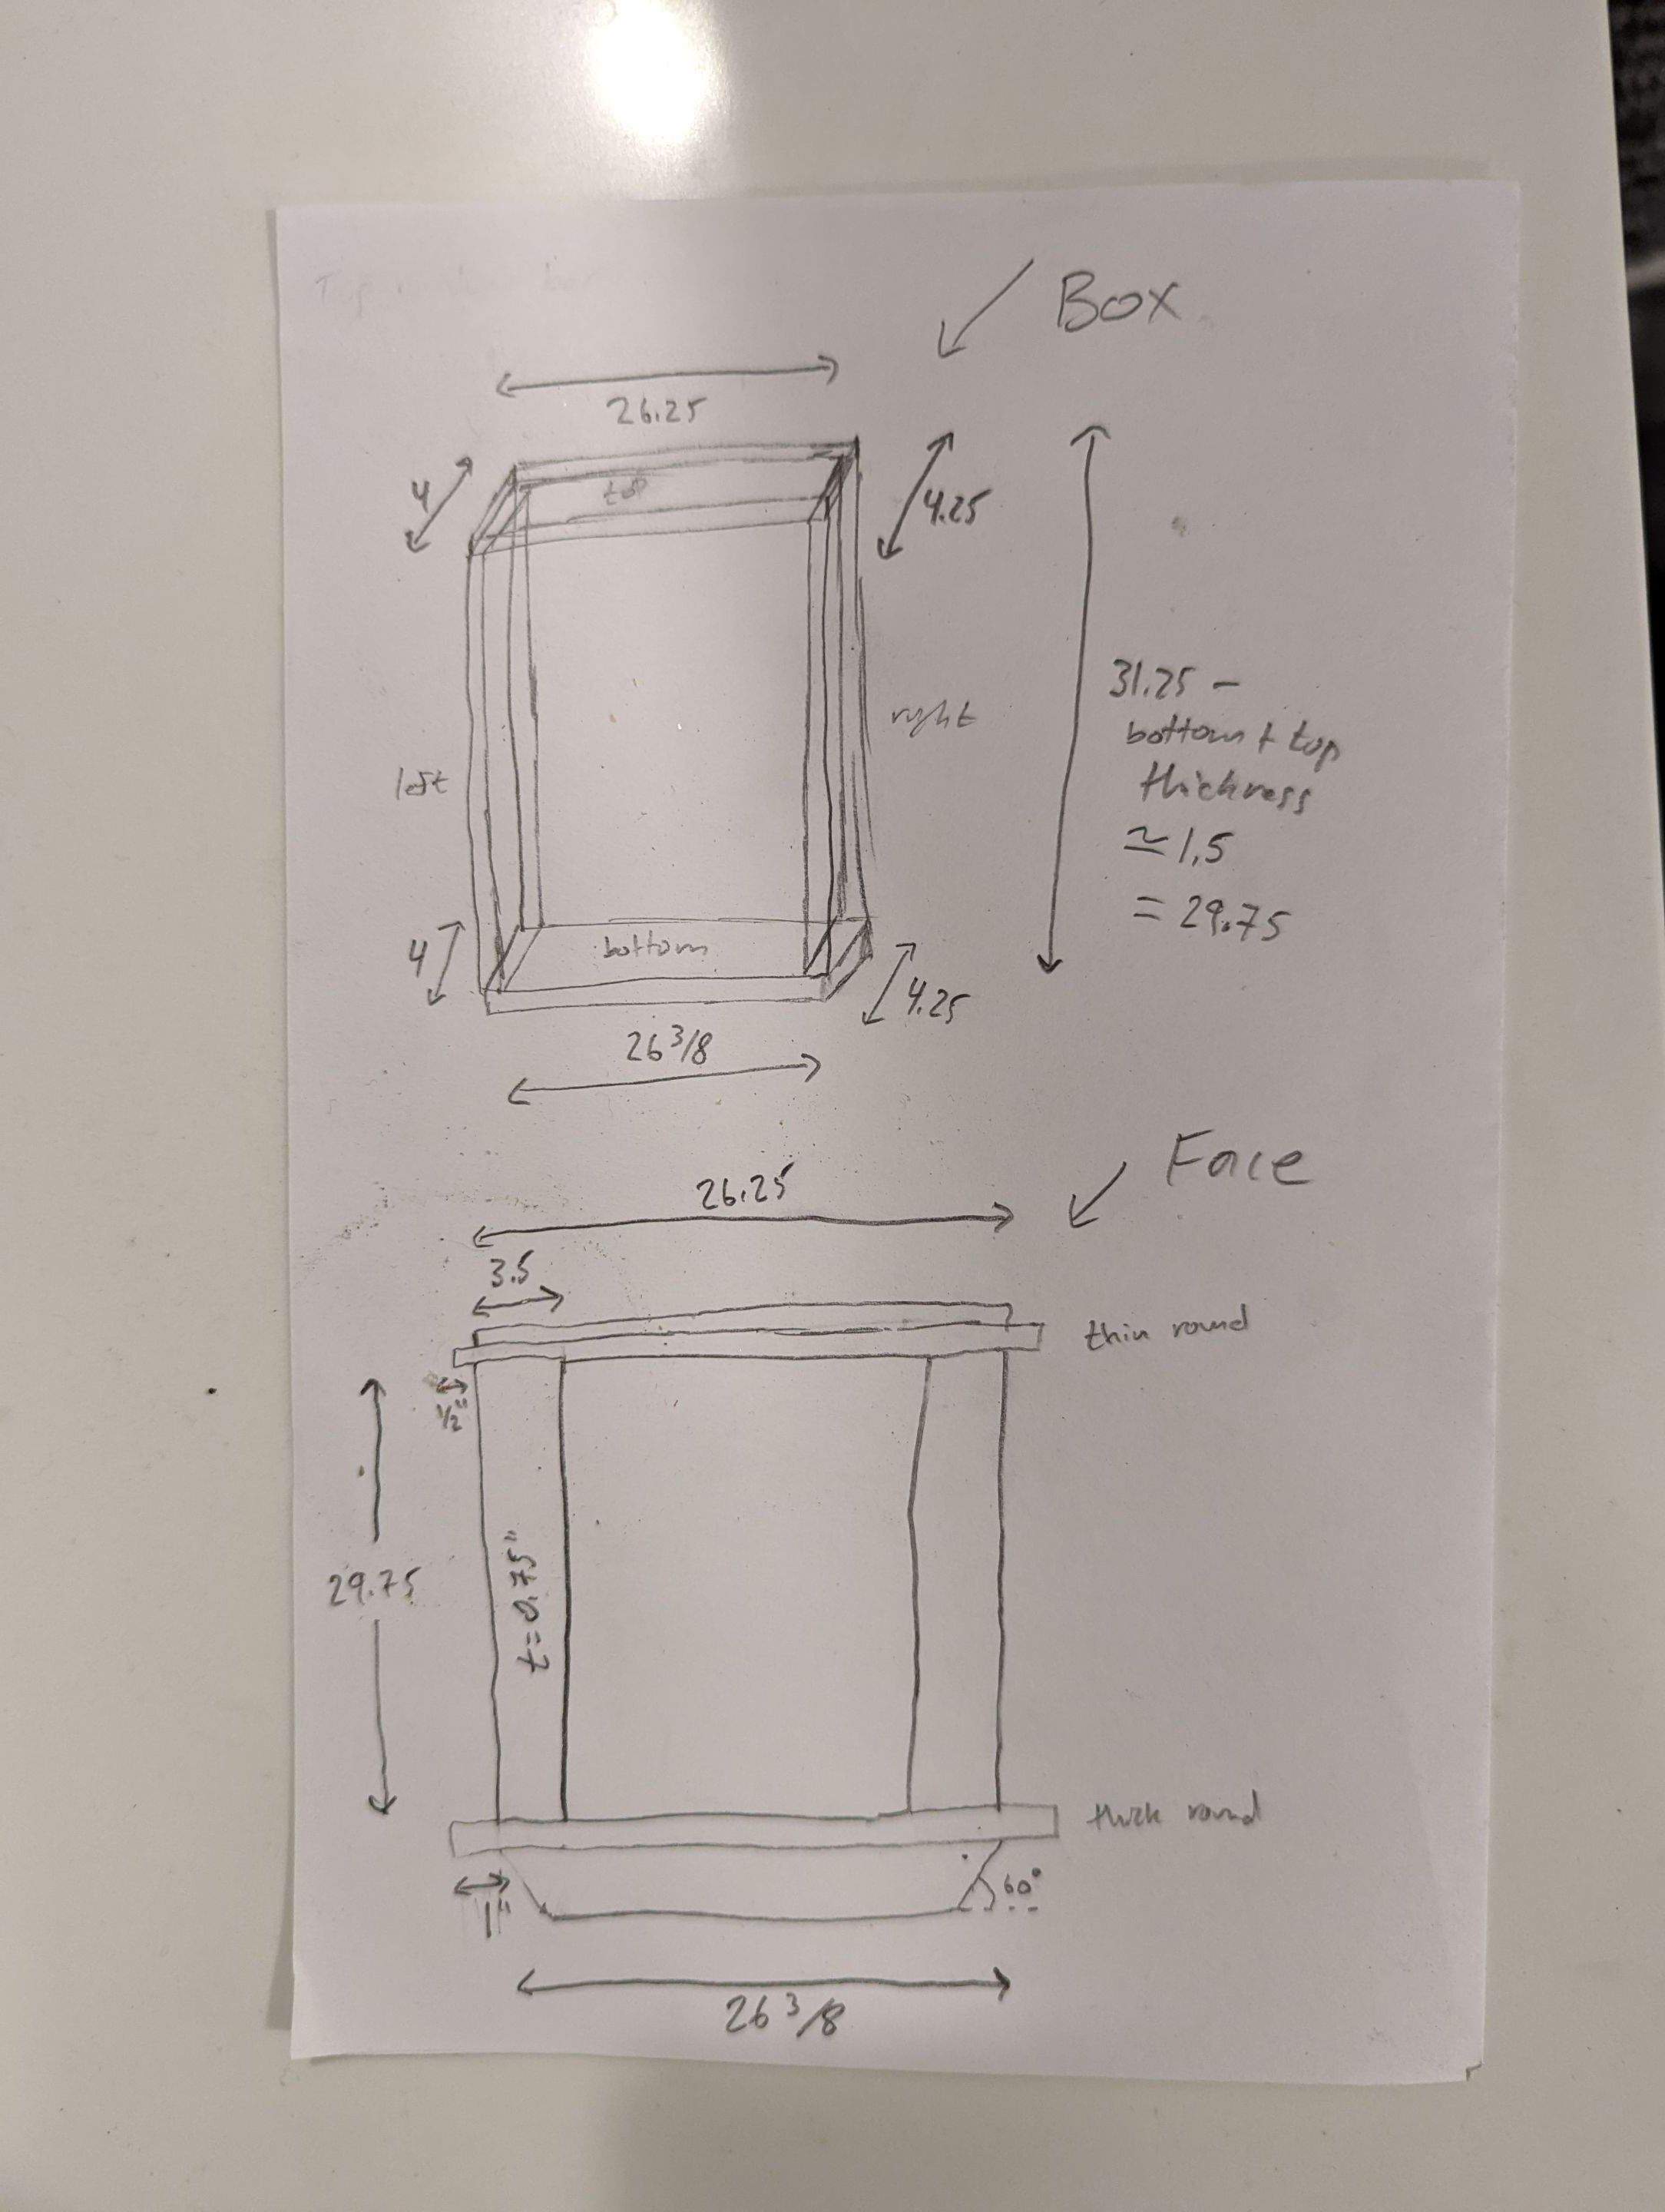 Box
26.25
4
4.25
top
31.25 -
bottom + top
thickness
≃ 1.5
= 29.75
right
left
bottom
4
4.25
26 3/8
Face
26.25
3.5
thin round
1/2"
29.75
t=0.75"
thick round
1"
60°
26 3/8